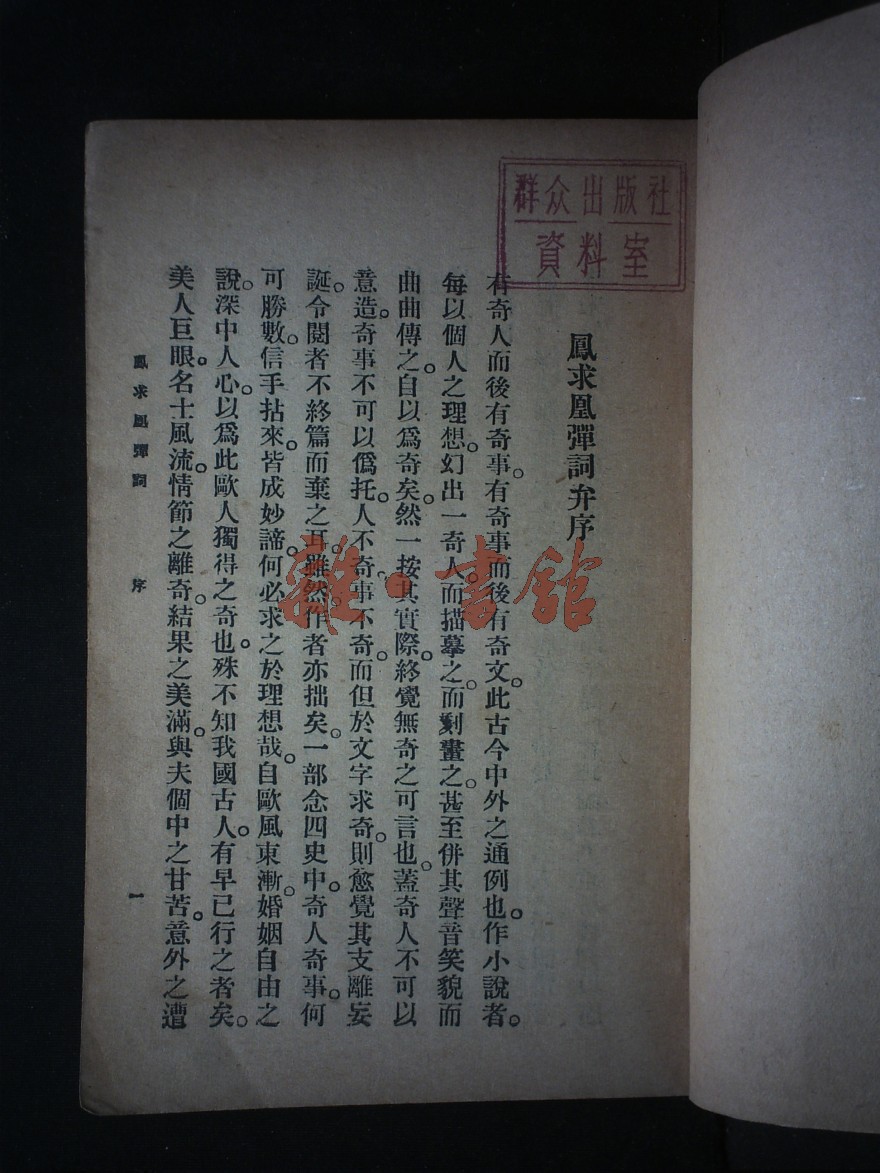 群众出版社
資料室
鳳求凰彈詞弁序
有奇人而後有奇事。有奇事而後有奇文。此古今中外之通例也。作小說者。
每以個人之理想。幻出一奇人。而描摹之。而刻畫之。甚至併其聲音笑貌而
曲曲傳之。自以爲奇矣。然一按其實際。終覺無奇之可言也。蓋奇人不可以
意造。奇事不可以僞托。人不奇。事不奇。而但於文字求奇。則愈覺其支離妄
誕。令閱者不終篇而棄之耳。雖然。作者亦拙矣。一部念四史中。奇人奇事。何
可勝數。信手拈來。皆成妙諦。何必求之於理想哉。自歐風東漸。婚姻自由之
說。深中人心。以爲此歐人獨得之奇也。殊不知我國古人。有早已行之者矣。
美人巨眼。名士風流。情節之離奇。結果之美滿。與夫個中之甘苦。意外之遭
鳳求凰彈詞 序 一
雜·書館